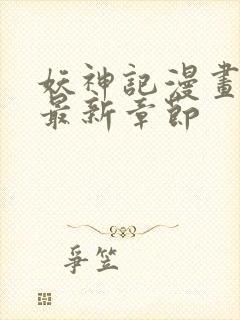 妖神記漫畫
最新章節
爭笠